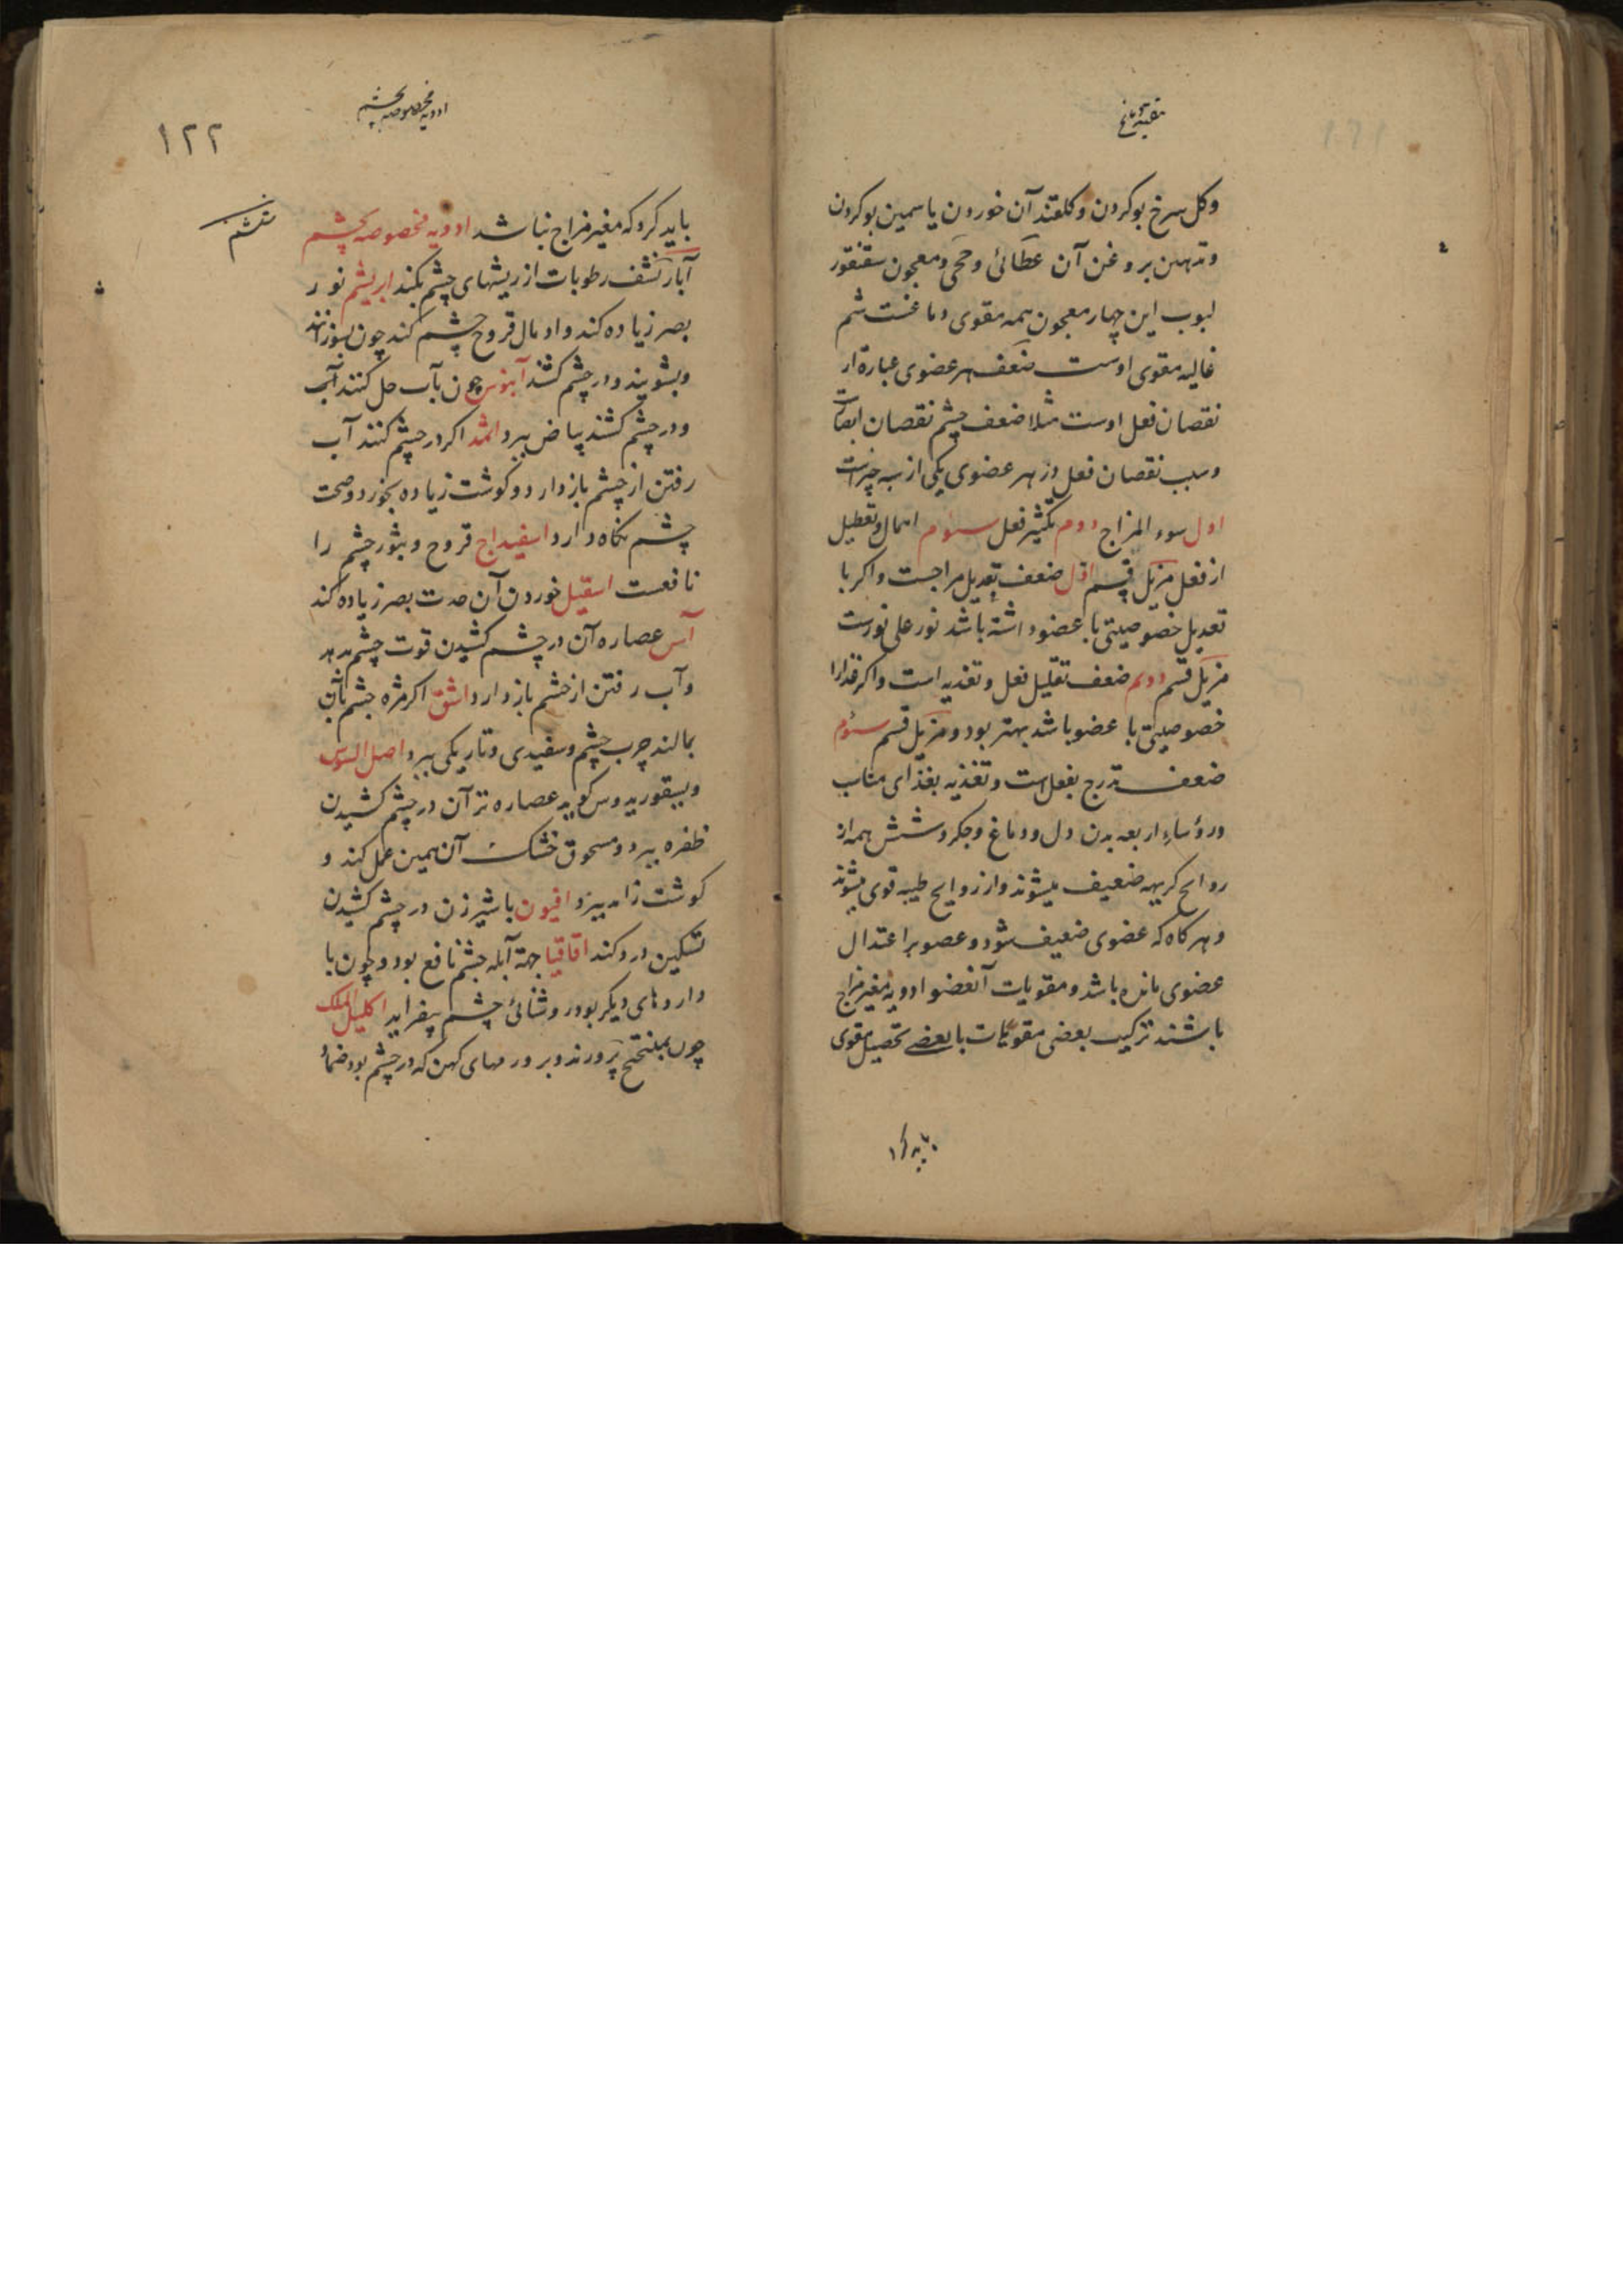 تنقیة دماغ
وکل سرخ بو کردن و کلقند آن خوردن یاسمین بو کردن
و تدهین بروغن آن عطائی و حجی و معجون سقنقور
لبوب این چهار معجون همه مقوی دماغست شم
غالیه مقوی اوست ضعف هر عضوی عبارة از
نقصان فعل اوست مثلا ضعف چشم نقصان ابصارست
و سبب نقصان فعل در هر عضوی یکی از سه چیز است
اول سوء المزاج دوم تکثیر فعل سئوم اهمال و تعطیل
از فعل مزیل قسم اول ضعف تعدیل مزاجست و اکر با
تعدیل خصوصیتی با عضو داشته باشد نور علی نورست
مزیل قسم دوم ضعف تقلیل فعل و تغذیه است و اکر غذا را
خصوصیتی با عضو باشد بهتر بود و مزیل قسم سئوم
ضعف تدرج بفعل است و تغذیه بغذای مناسب
و رؤساء اربعه بدن دل و دماغ و جکر و شش همه از
روایح کریهه ضعیف میشوند و از روایح طیبه قوی میشوند
و هر کاه که عضوی ضعیف شود و عضو بر اعتدال
عضوی مانده باشد و مقویات آنعضو ادویه مغیر مزاج
باشند ترکیب بعضی مقویات با بعضی تحصیل مقوی
باید کر
ادویه مخصوصه بچشم
۱۲۲
باید کرد که مغیر مزاج نباشد ادویه مخصوصه بچشم
آبار نشف رطوبات از ریشهای چشم بکند ابریشم نور
بصر زیاده کند و ادمال قروح چشم کند چون بسوزانند
و بشویند و در چشم کشند آبنوس چون بآب حل کنند آب
و در چشم کشند بیاض ببرد اثمد اکر در چشم کنند آب
رفتن از چشم باز دارد و کوشت زیاده بخورد و صحت
چشم نکاه دارد اسفیداج قروح و بثور چشم را
نافعست اسقیل خوردن آن حدت بصر زیاده کند
آس عصاره آن در چشم کشیدن قوت چشم دهد
و آب رفتن از چشم باز دارد اشق اکر مژه چشم بآن
بمالند جرب چشم و سفیدی و تاریکی ببرد اصل السوس
دیسقوریدوس کوید عصاره تر آن در چشم کشیدن
ظفره ببرد و مسحوق خشک آن همین عمل کند و
کوشت زاید ببرد افیون با شیر زن در چشم کشیدن
تسکین درد کند اقاقیا جهة آبله چشم نافع بود و چون با
داروهای دیکر بود روشنائی چشم بیفزاید اکلیل الملک
چون بمیبختج پرورند و بر ورمهای کهن که در چشم بود ضماد